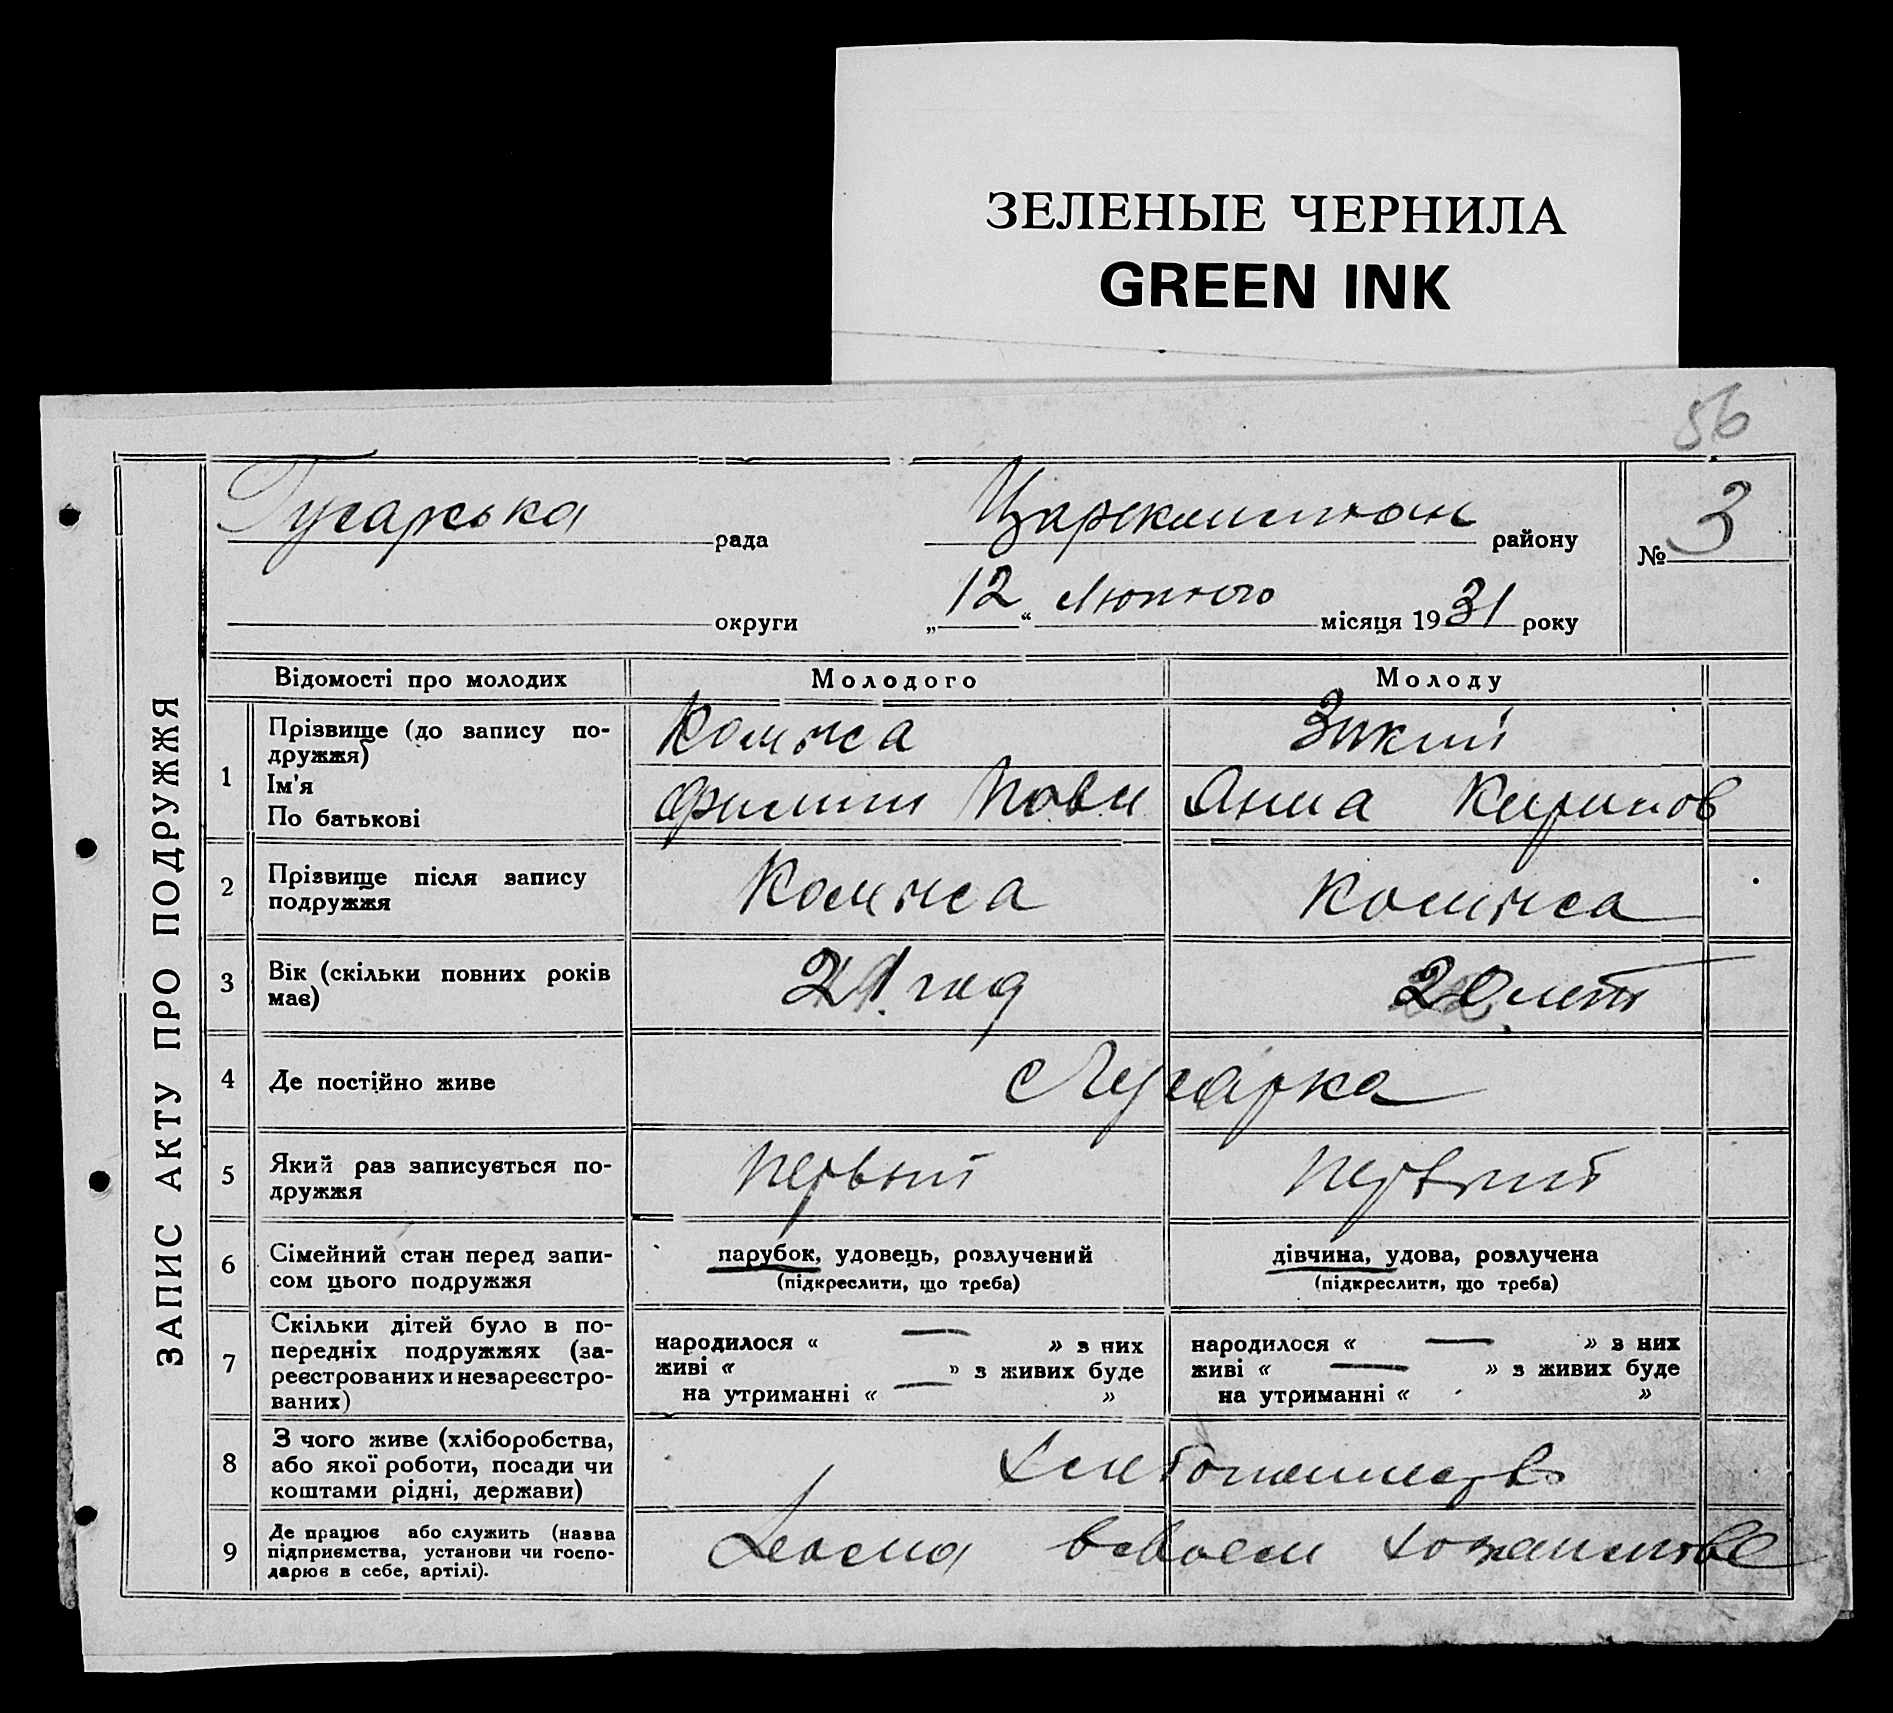 ЗЕЛЕНЫЕ ЧЕРНИЛА
GREEN INK
56
ЗАПИС АКТУ ПРО ПОДРУЖЖЯ
рада
району
№ 3
округи
„12“ Лютого місяця 1931 року
Відомості про молодих
Молодого
Молоду
1
Прізвище (до запису по-
дружжя)
Ім'я
По батькові
Анна
2
Прізвище після запису
подружжя
3
Вік (скільки повних років
має)
21 год
20 лет
4
Де постійно живе
5
Який раз записується по-
дружжя
Первый
Первый
6
Сімейний стан перед запи-
сом цього подружжя
парубок, удовець, розлучений
(підкреслити, що треба)
дівчина, удова, розлучена
(підкреслити, що треба)
7
Скільки дітей було в по-
передніх подружжях (за-
реєстрованих и незареєстро-
ваних)
народилося « — » з них
живі « » з живих буде
на утриманні « — »
народилося « — » з них
живі « — » з живих буде
на утриманні « »
8
З чого живе (хліборобства,
або якої роботи, посади чи
коштами рідні, держави)
9
Де працює або служить (назва
підприємства, установи чи госпо-
дарює в себе, артілі).